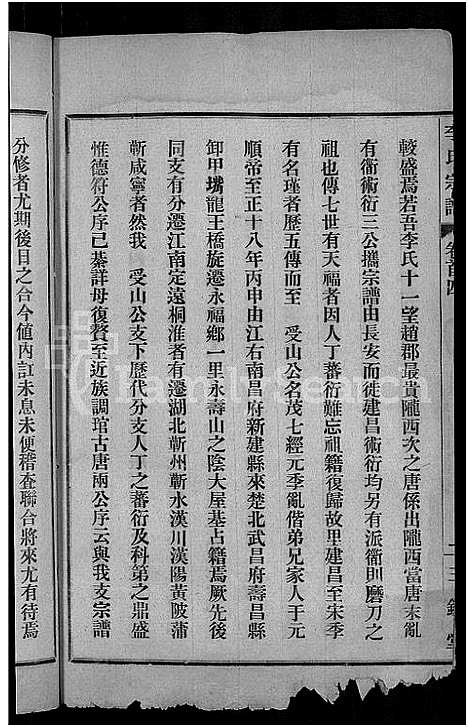 李氏宗譜
卷首四
較盛焉若吾李氏十一望趙郡最貴隴西次之唐係出隴西當唐末亂
有衛術衍三公攜宗譜由長安而徙建昌術衍均另有派衛則磨刀之
祖也傳七世有天福者因人丁蕃衍難忘祖籍復歸故里建昌至宋季
有名瑾者歷五傳而至 受山公名茂七經元季亂偕弟兄家人于元
順帝至正十八年丙申由江右南昌府新建縣來楚北武昌府壽昌縣
卸甲嘴龍王橋旋遷永福鄉一里永壽山之陰大屋基占籍焉厥先後
同支有分遷江南定遠桐淮者有遷湖北蘄州蘄水漢川漢陽黃陂蒲
蘄咸寧者然我 受山公支下歷代分支人丁之蕃衍及科第之鼎盛
惟德符公序已綦詳毋復贅至近族調琯古唐兩公序云與我支宗譜
分修者尤期後日之合今値內訌未息未便稽查聯合將來尤有待焉
FamilySearch